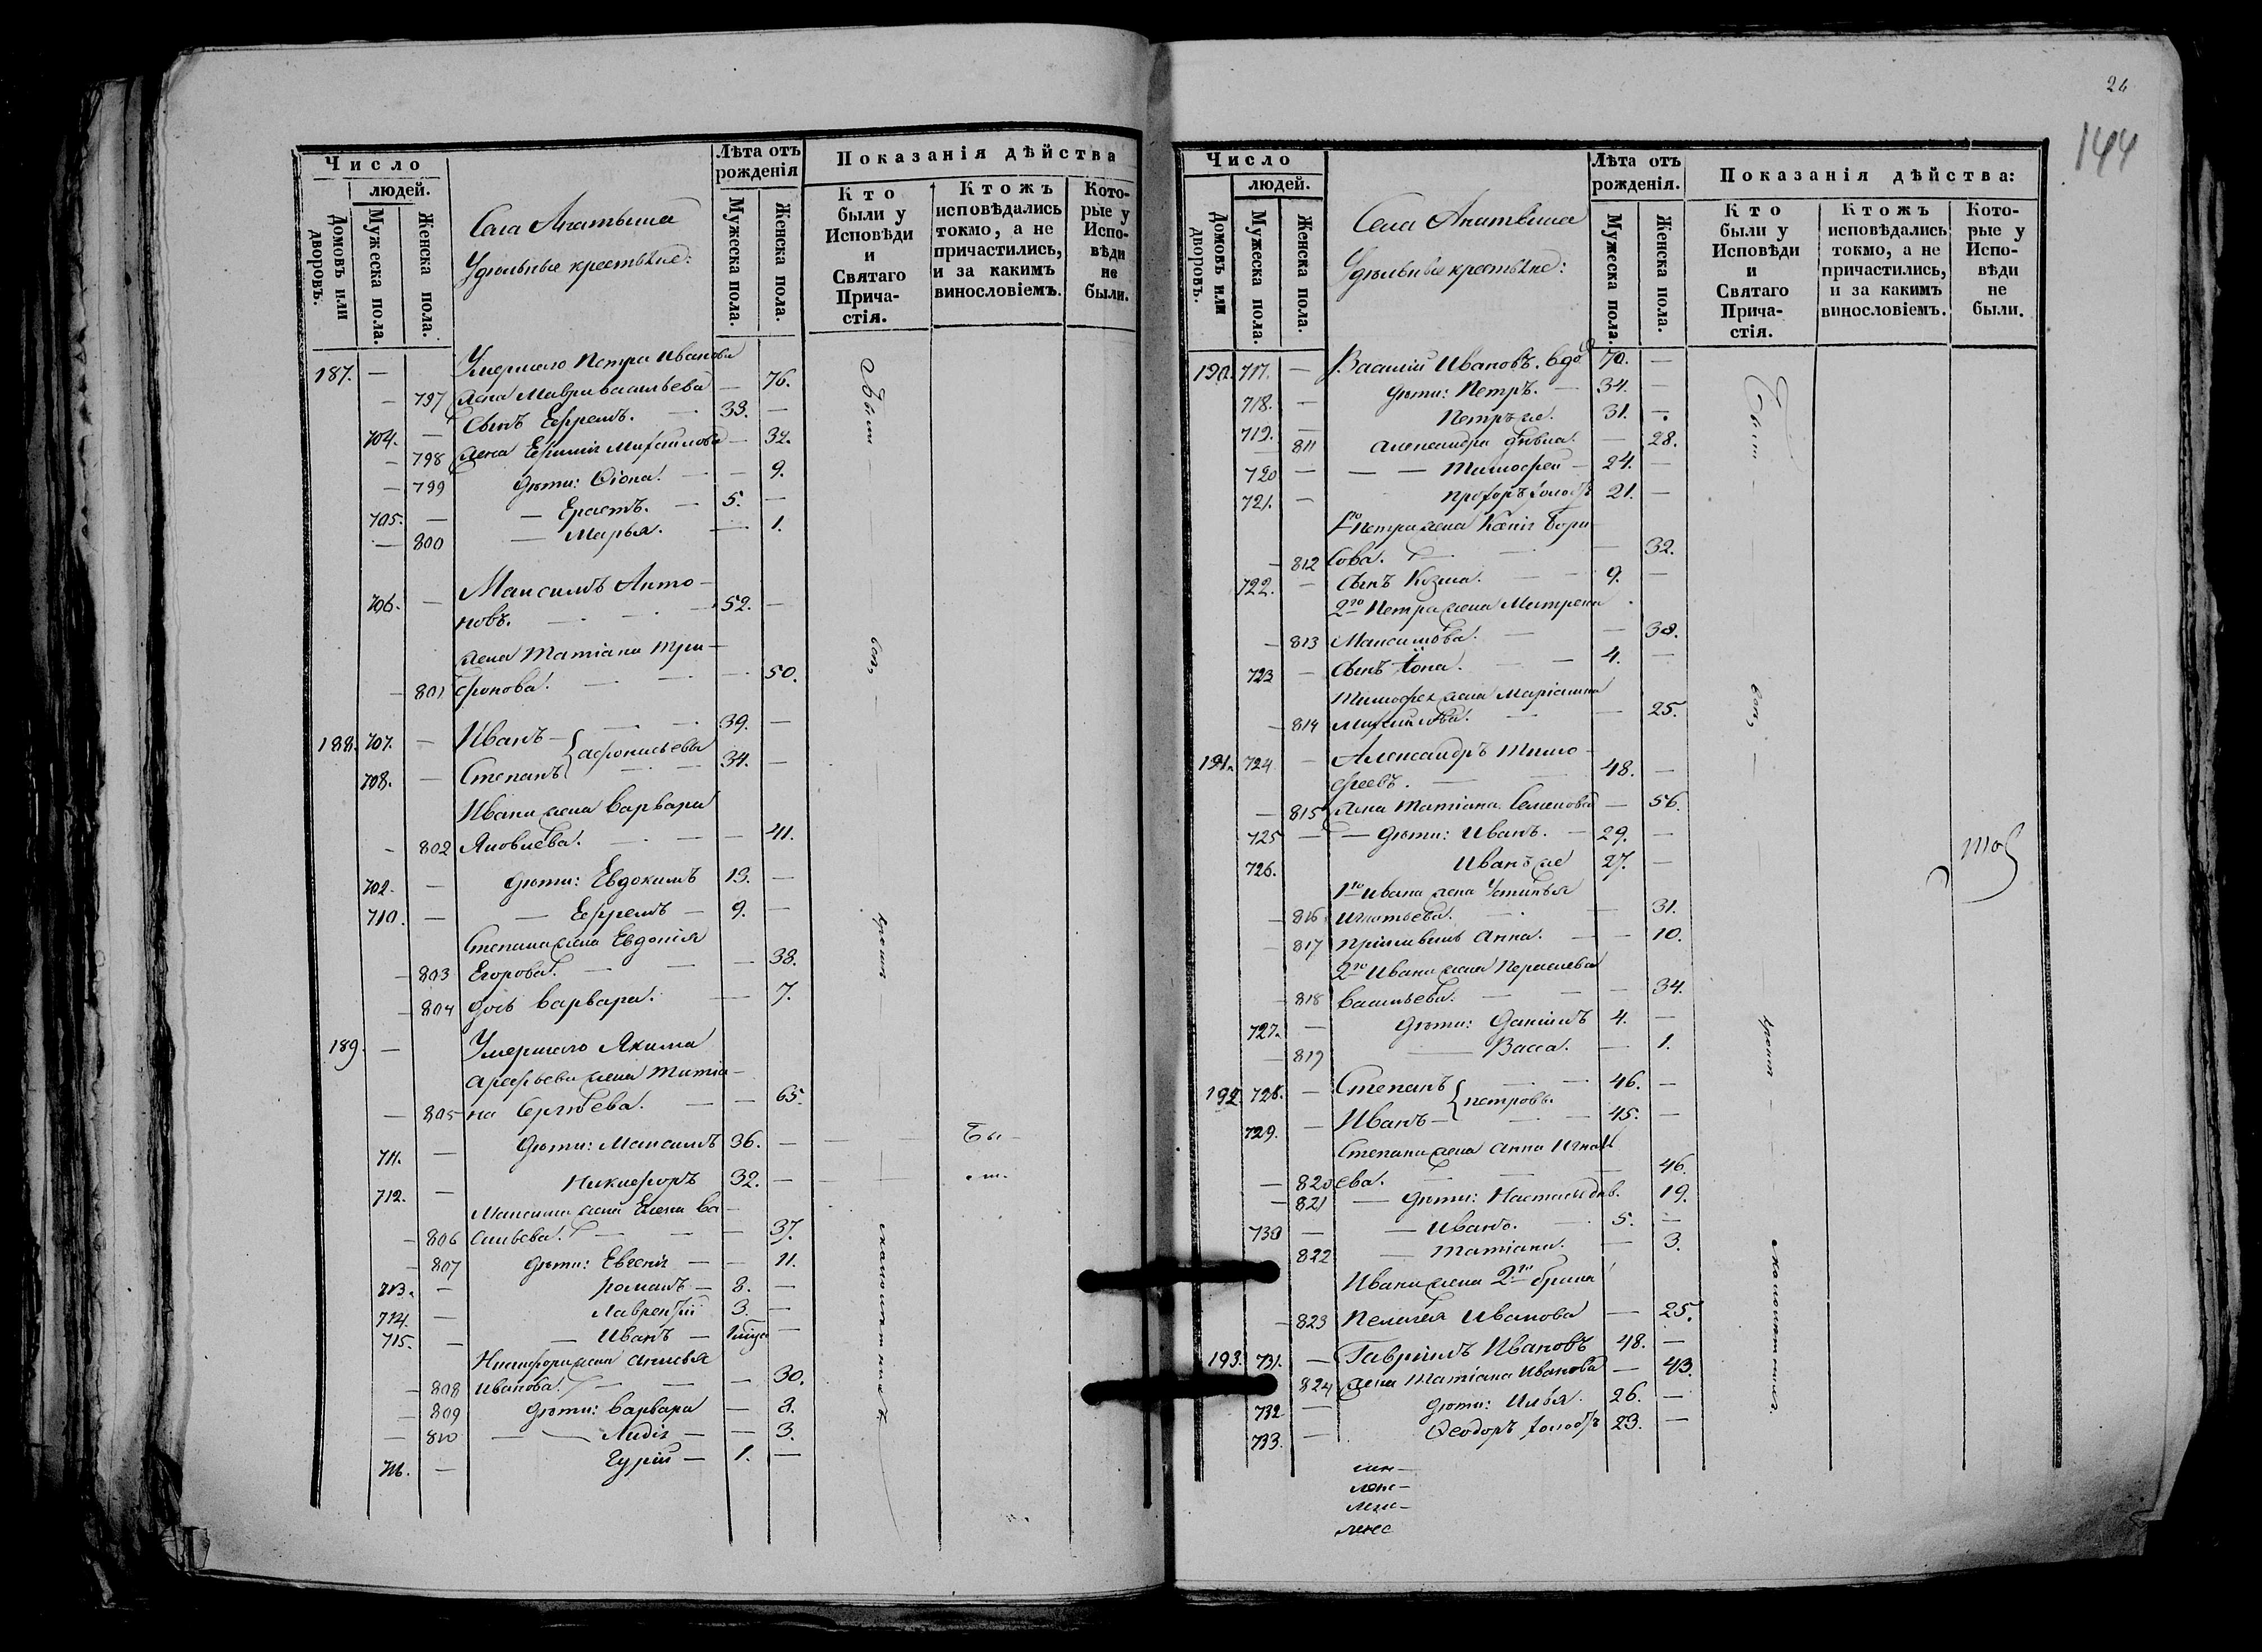 Число
людей.
Домовъ или дворовъ.
Мужеска пола.
Женска пола.
Села Апатьина
Удѣльные крестьяне:
Лѣта отъ рожденія
Мужеска пола.
Женска пола.
Показанія дѣйства
Кто были у Исповѣди и Святаго Прича-стія.
Ктожъ исповѣдались токмо, а не причастились, и за какимъ винословіемъ.
Кото-рые у Испо-вѣди не были.
187. — Умершаго Петра Иванова
— 797 жена Мавра Васильева — 76.
704. — Сынъ Ефремъ. — 33. —
— 798 жена Михайлова — 32.
— 799 Дѣти: — 9.
705. — — Ерастъ. — 5. —
— 800 — Марья. — 1.
706. — Максимъ Анто-
новъ. — 52. —
жена Татіана Три-
— 801 фонова. — 50.
188. 707. — Иванъ — 39. —
Афонасьевы
708. — Степанъ — 34. —
Ивана жена Варвара
— 802 Яковлева. — 41.
709. — Дѣти: Евдокимъ 13. —
710. — — Ефремъ — 9. —
Степана жена Евдокія
— 803 Егорова. — 38.
— 804 дочь Варвара. — 7.
189. — Умершаго Якима
Арефьева жена Татіа-
— 805 на Сергѣева. — 65.
711. — Дѣти: Максимъ 36. — Бы-
712. — Никифоръ 32. — ли.
Максима жена Елена Ва-
— 806 сильева. — 37.
— 807 Дѣти: Евгенія — 11.
713. — Романъ — 8. —
714. — Лаврентій 3. —
715. — — Иванъ —
Никифора жена Анисья
— 808 Иванова. — 30.
— 809 Дѣти: Варвара — 8.
— 810 — Лидія — 3.
716. — Гурій — 1. —
Были
всѣ
кромѣ
26
144
Число
людей.
Домовъ или дворовъ.
Мужеска пола.
Женска пола.
Села Апатьина
Удѣльные крестьяне:
Лѣта отъ рожденія.
Мужеска пола.
Женска пола.
Показанія дѣйства:
Кто были у Исповѣди и Святаго Прича-стія.
Ктожъ исповѣдались токмо, а не причастились, и за какимъ винословіемъ.
Кото-рые у Испо-вѣди не были.
190. 717. — Василій Ивановъ. вдов 70. —
718. — Дѣти: Петръ. — 34. —
719. — Петръ же. 31. —
— 811 Александра дѣвка. — 28.
720 — — Тимофей — 24. —
721. — Прохоръ холостъ 21. —
1го Петра жена Ксенія Бори-
— 812 сова. — 32.
722. — Сынъ Козма. — 9. —
2го Петра жена Матрена
— 813 Максимова. — 38.
723 — Сынъ Іона. — 4. —
Тимофея жена Маріанна
— 814 Михайлова. — 25.
191. 724 — Александръ Тимо-
феевъ. — 48. —
— 815 жена Татіана Семенова — 56.
725 — — Дѣти: Иванъ. — 29. —
726. Иванъ же 27. —
1го Ивана жена Устинья
— 816 Игнатьева. — 31.
— 817 Анна. — 10.
2го Ивана жена Парасковья
— 818 Васильева. — 34.
727. — Дѣти: Даніилъ 4. —
— 819 — Васса. — 1.
192. 728. — Степанъ — 46. —
Петровы.
729. — Иванъ — 45. —
Степана жена Анна Игнать
— 820 ева. — 46.
— 821 — Дѣти: Настасья дѣв. 19.
730 — — Иванъ. 5. —
822 — Татіана. — 3.
Ивана жена 2го брака
— 823 Пелагея Иванова — 25.
193. 731. — Гавріилъ Ивановъ 48. —
824 жена Татіана Иванова — 43.
732 — Дѣти: Илья. 26. —
733. — Ѳеодоръ холостъ 23. —
Были
всѣ
кромѣ